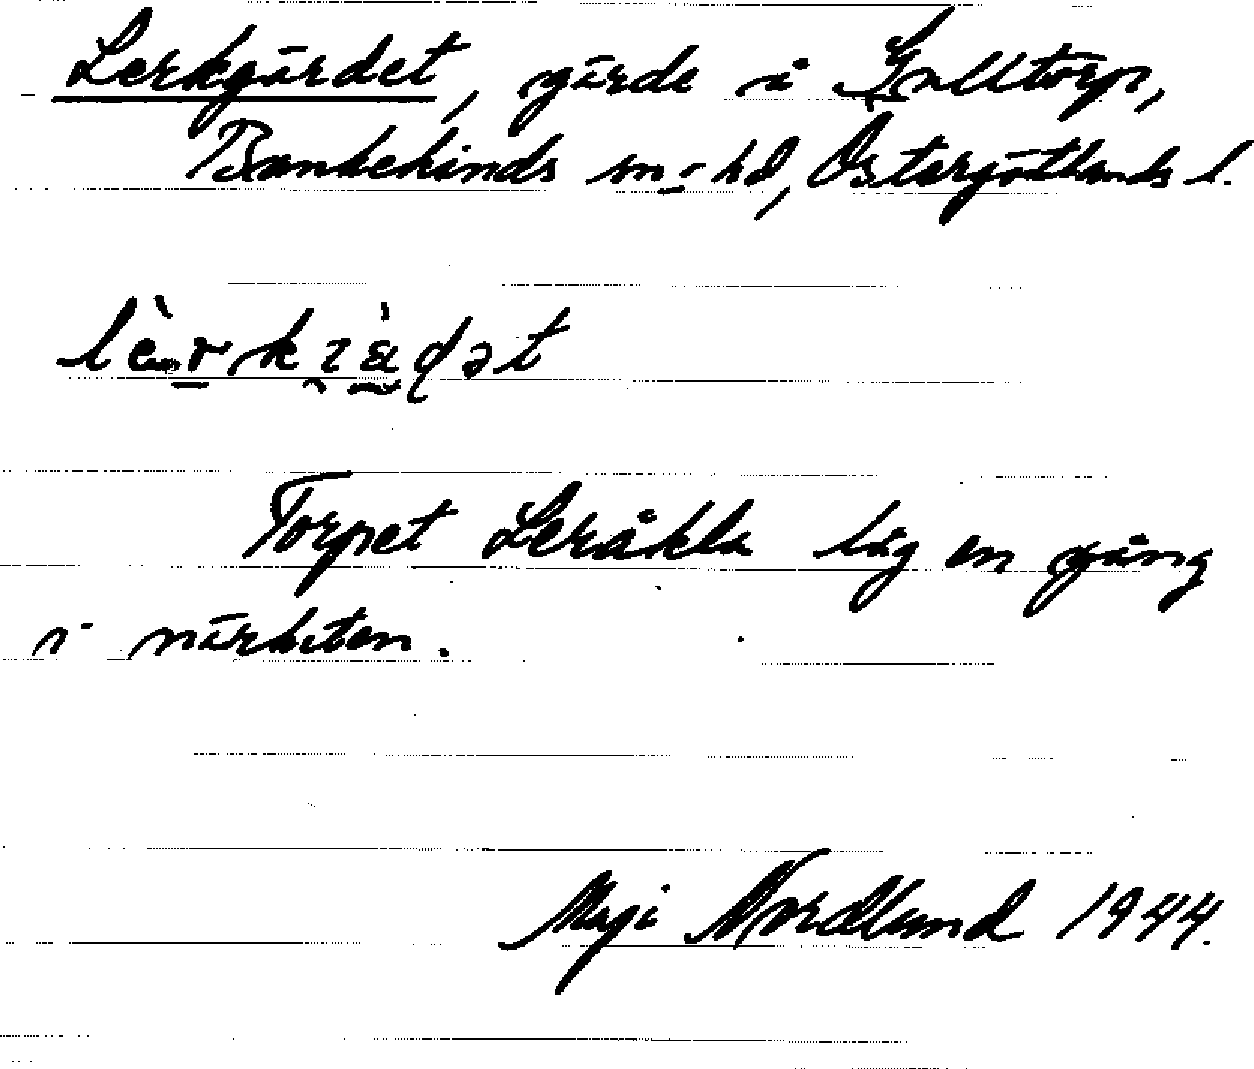 Lerkgärdet, gärde å Gulltorp,
Bankekinds sn o hd, Östergötlands l.
Torpet Leråkla låg en gång
i närheten.
Maji Nordlund 1944.